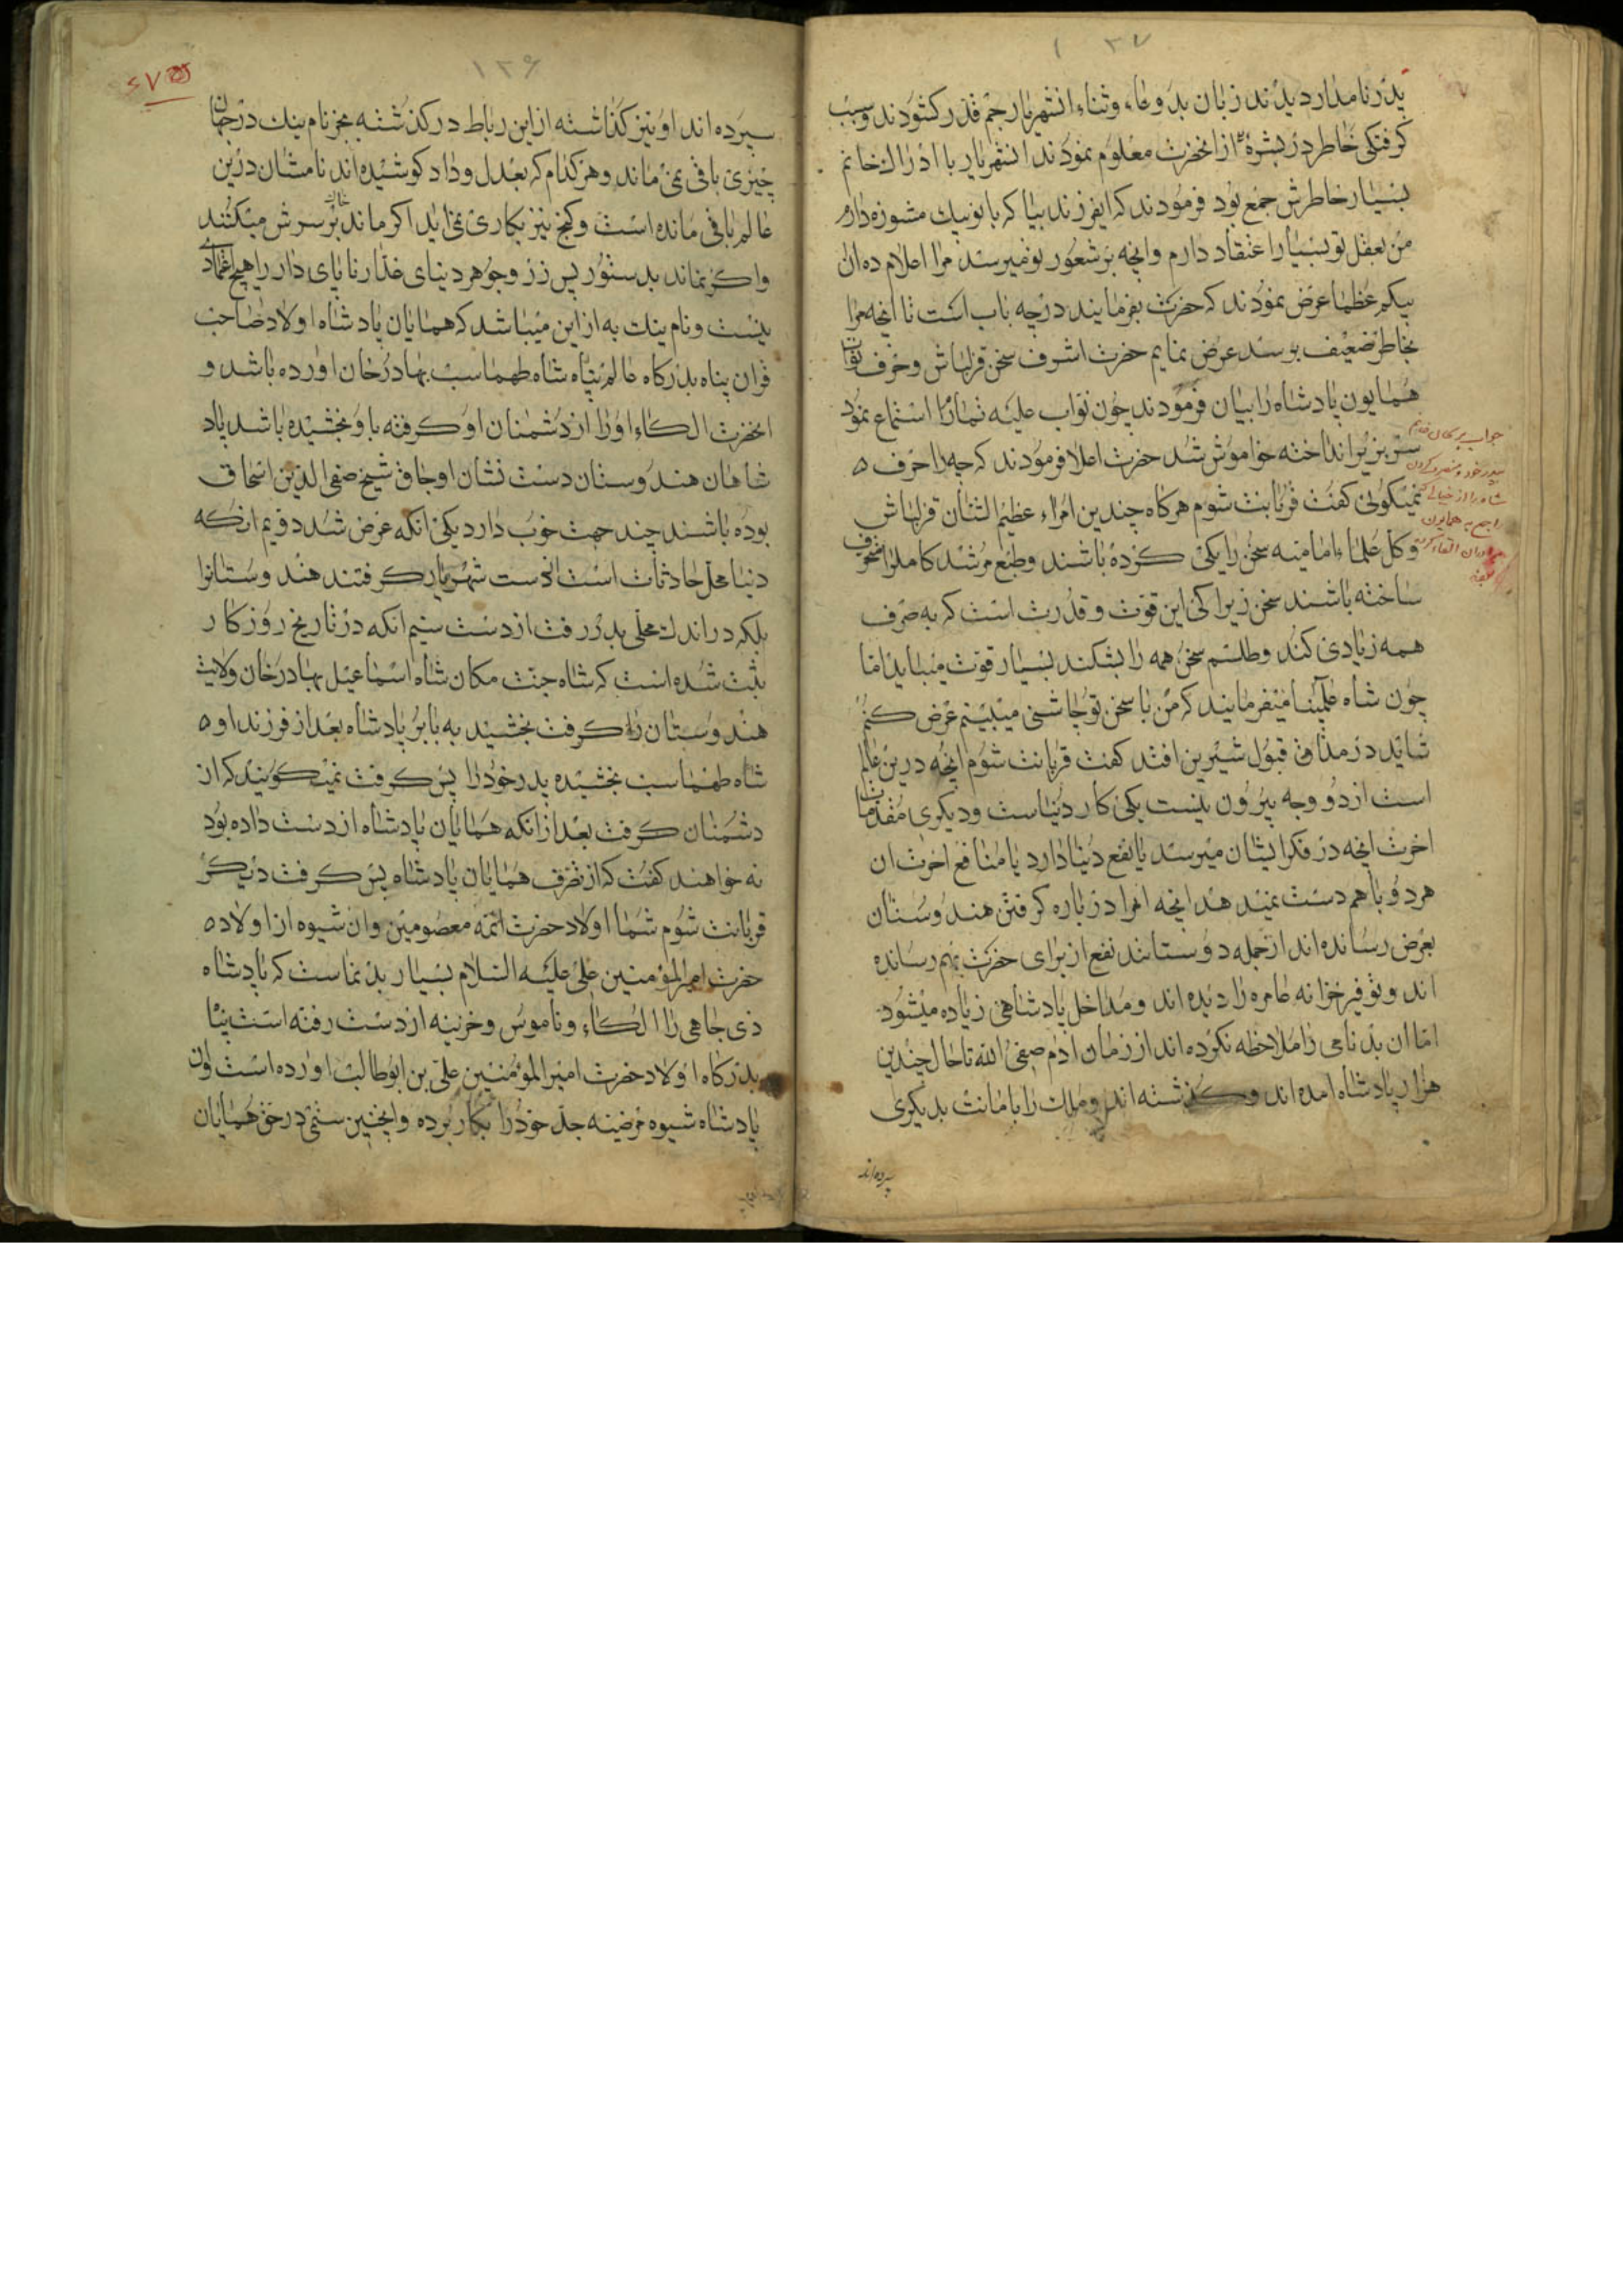 ۱۳۷
پدر نامدار دیدند زبان بدعاء وثناء انشهریار جم قدر کشودند وسبب
کرفتکی خاطر در بشرهٔ از انحضرت معلوم نمودند انشهریار با از انخانم
بسیار خاطرش جمع بود فرمودند که ایفرزند بیا که با تو نیک مشوره دارم
من بعقل تو بسیار اعتقاد دارم وانچه بر شعور تو میرسد مرا اعلام ده ان
بیکم عظما عرض نمودند که حضرت بفرمایند در چه باب است تا انچه مرا
بخاطر ضعیف برسد عرض نمایم حضرت اشرف سخن قزلباش وحرف نواب
همایون پادشاه را بیان فرمودند چون نواب علیه تمام را استماع نمود
سر بزیر انداخته خواموش شد حضرت اعلا فرمودند که چرا حرف
نمیکوئی کفت قربانت شوم هرکاه چندین امراء عظیم الشان قزلباش
وکل علماء امامیه سخن را یکی کرده باشند وطبع مرشد کامل را منحرف
ساخته باشند سخن زیرا کی این قوت وقدرت است که به حرف
همه زیادی کند وطلسم سخن همه را بشکند بسیار قوت میباید اما
چون شاه عالمپنا میفرمایند که من با سخن تو چاشنی میبینم عرض کنم
شاید در مذاق قبول شیرین افتد کفت قربانت شوم انچه درین عالم
است از دو وجه بیرون نیست یکی کار دنیاست ودیکری مقدمات
اخرت انچه در فکر ایشان میرسد یا نفع دنیا دارد یا منافع اخرت ان
هر دو با هم دست نمیدهد انچه امرا در باره کرفتن هندوستان
بعرض رسانده اند از جمله دوستانند نفع از برای حضرت بهم رسانده
اند وتوفیر خزانه عامره را دیده اند ومداخل پادشاهی زیاده میشود
اما ان بدنامی را ملاحظه نکرده اند از زمان ادم صفی الله تا حال چندین
هزار پادشاه امده اند وکذشته اند وملک را بامانت بدیکری
سپرده اند
۱۳۶
سپرده اند او نیز کذاشته از این رباط در کذشته بجز نام نیک در جهان
چیزی باقی نمی ماند وهر کدام که بعدل وداد کوشیده اند نامشان درین
عالم باقی مانده است وکنج نیز بکاری نمی اید اکر ماند بر سرش میکنند
واکر نماند بدستور پس زر وجوهر دنیای غدار ناپای دار را هیچ اعتماد
نیست ونام نیک به از این میباشد که همایان پادشاه اولاد صاحب
قران پناه بدرکاه عالم پناه شاه طهماسب بهادرخان اورده باشد و
انحضرت الکاء او را از دشمنان او کرفته باو بخشیده باشد یاد
شاهان هندوستان دست نشان اوجاق شیخ صفی الدین اسحاق
بوده باشند چند جهت خوب دارد یکی انکه عرض شد دویم انکه
دنیا محل حادثات است از دست شهریار کرفتند هندوستانرا
بلکه در اندک محلی بدر رفت از دست سیم انکه در تاریخ روزکار
ثبت شده است که شاه جنت مکان شاه اسماعیل بهادرخان ولایت
هندوستان را کرفت بخشید به بابر پادشاه بعد از فرزند او
شاه طهماسب بخشیده پدر خود را پس کرفت نمیکویند که از
دشمنان کرفت بعد از انکه همایان پادشاه از دست داده بود
نه خواهند کفت که از تصرف همایان پادشاه پس کرفت دیکر
قربانت شوم شما اولاد حضرت ائمه معصومین وان شیوه از اولاد
حضرت امیرالمؤمنین علی علیه السلام بسیار بدنماست که پادشاه
ذی جاهی را الکاء وناموس وخزینه از دست رفته است پناه
بدرکاه اولاد حضرت امیرالمؤمنین علی بن ابوطالب اورده است وان
پادشاه شیوه مرضیه جد خود را بکار برده واینچنین ستمی در حق همایان